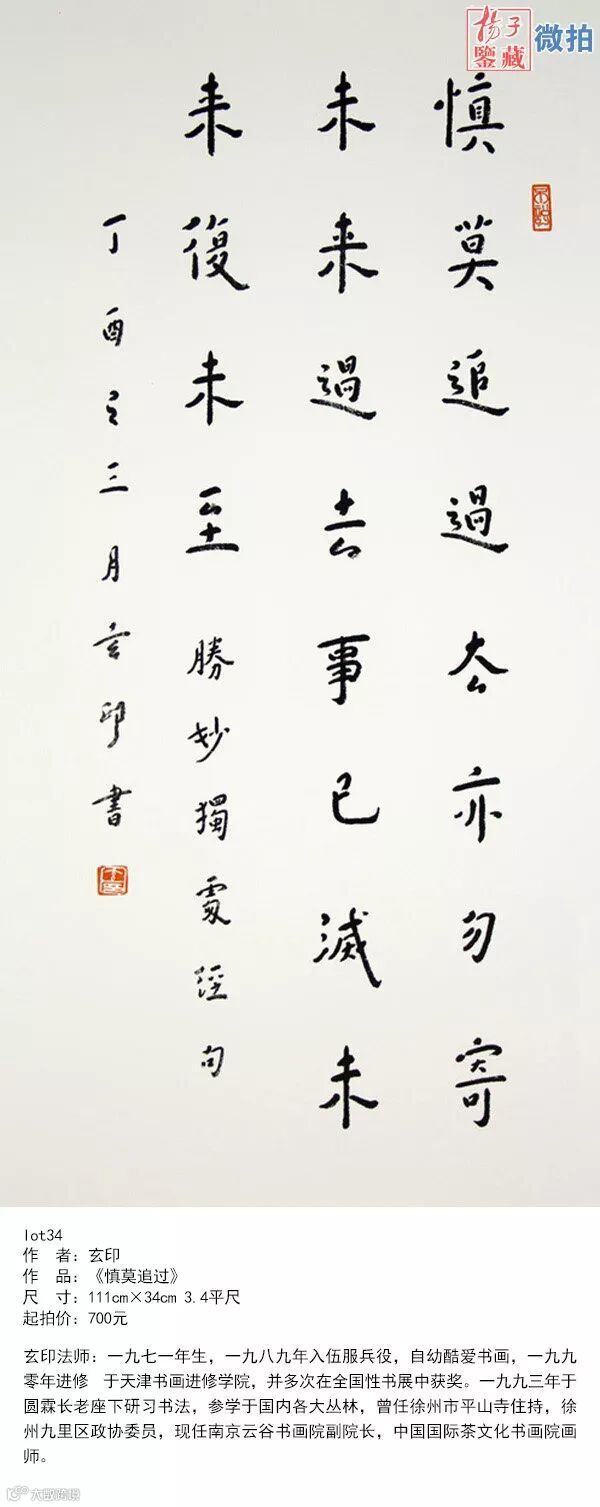 楊子
鑒藏
微拍
慎莫追過去亦勿寄
未来過去事已滅未
来復未至 勝妙獨處經句
丁酉之三月玄印書
lot34
作　者：玄印
作　品：《慎莫追过》
尺　寸：111cm×34cm 3.4平尺
起拍价：700元
玄印法师：一九七一年生，一九八九年入伍服兵役，自幼酷爱书画，一九九
零年进修　于天津书画进修学院，并多次在全国性书展中获奖。一九九三年于
圆霖长老座下研习书法，参学于国内各大丛林，曾任徐州市平山寺住持，徐
州九里区政协委员，现任南京云谷书画院副院长，中国国际茶文化书画院画
师。
大数跨境